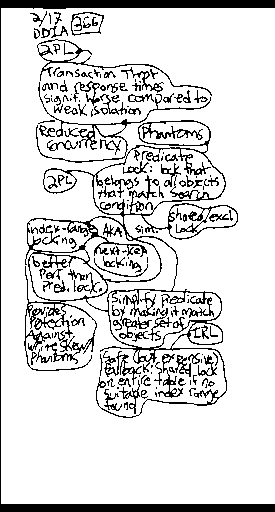 2/17
DDIA 266
2PL
Transaction Thrpt
and response times
signif. worse compared to
weak isolation
Reduced
concurrency
Phantoms
2PL
Predicate
Lock: lock that
belongs to all objects
that match search
condition
shared, excl
Lock
sim.
index-range
locking
AKA
next-key
locking
better
Perf than
Pred. lock.
Simplify Predicate
by making it match
greater set of
objects
IRL
Provides
Protection
Against
write skew/
Phantoms
Safe (but expensive)
fallback: shared lock
on entire table if no
suitable index range
found